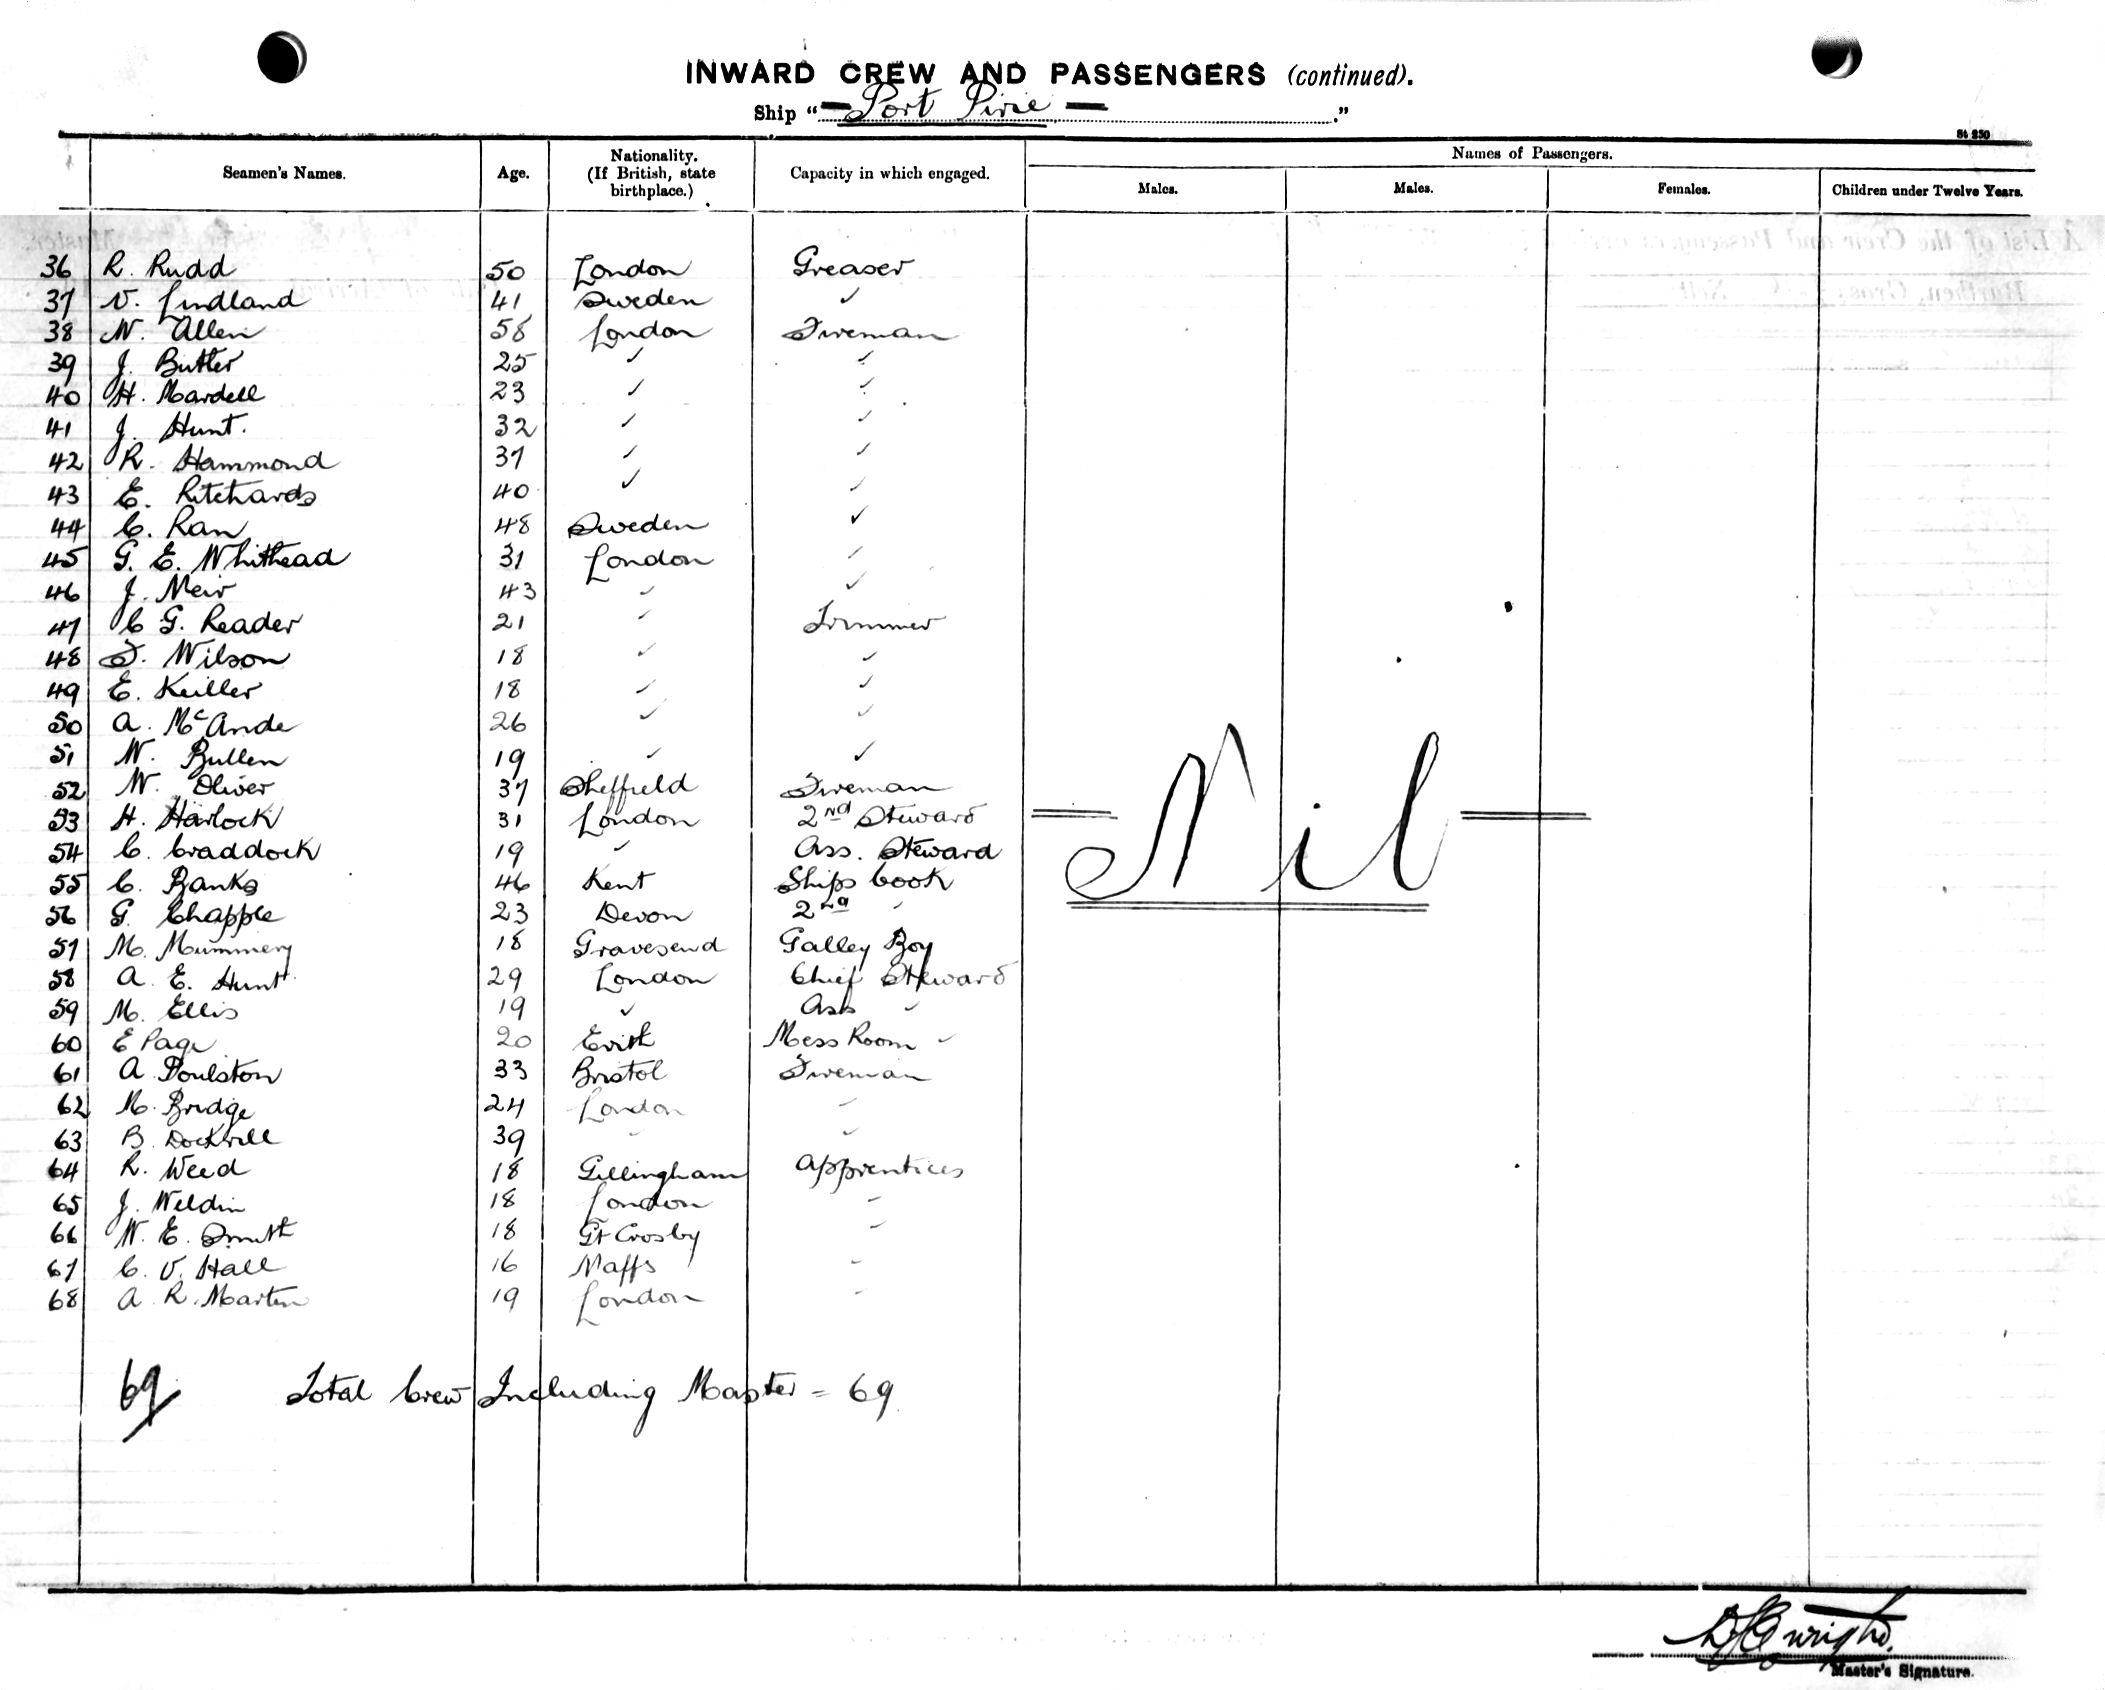 INWARD CREW AND PASSENGERS (continued).
Ship "— Port Pirie —."
St 230
Seamen's Names. Age. Nationality. (If British, state birthplace.) Capacity in which engaged. Names of Passengers.
Males. Males. Females. Children under Twelve Years.
36 R. Rudd 50 London Greaser
37 V. Lindland 41 Sweden ✓
38 W. Allen 58 London Fireman
39 J. Butler 25 ✓ ✓
40 H. Mardell 23 ✓ ✓
41 J. Hunt. 32 ✓ ✓
42 R. Hammond 37 ✓ ✓
43 E. Ritchards 40 ✓ ✓
44 C. Ran 48 Sweden ✓
45 G. E. Whithead 31 London ✓
46 J. Meir 43 ✓ ✓
47 C G. Reader 21 ✓ Trimmer
48 F. Wilson 18 ✓ ✓
49 E. Keiller 18 ✓ ✓
50 A. McAnde 26 ✓ ✓
51 W. Bullen 19 ✓ ✓
52 W. Oliver 37 Sheffield Fireman
53 H. Harlock 31 London 2nd Steward
54 C. Craddock 19 ✓ Ass. Steward
55 C. Banks 46 Kent Ships Cook
56 G. Chapple 23 Devon 2nd ✓
57 M. Mummery 18 Gravesend Galley Boy
58 A. E. Hunt 29 London Chief Steward
59 M. Ellis 19 ✓ Ass ✓
60 E Page 20 Erith Mess Room ✓
61 A. Poulston 33 Bristol Fireman
62 M. Bridge 24 London ✓
63 B. Dockrill 39 ✓ ✓
64 R. Weed 18 Gillingham Apprentices
65 J. Weldin 18 London ✓
66 W. E. Smith 18 Gt Crosby ✓
67 C. V. Hall 16 ✓
68 A. R. Martin 19 London ✓
= Nil =
69 Total Crew Including Master = 69
Master's Signature.